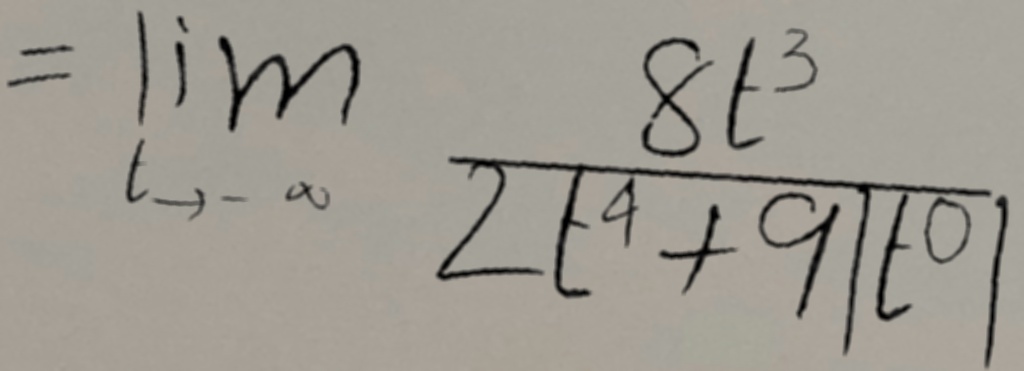 = lim_{t→-∞} \frac{8t^3}{2t^4+9|t^0|}